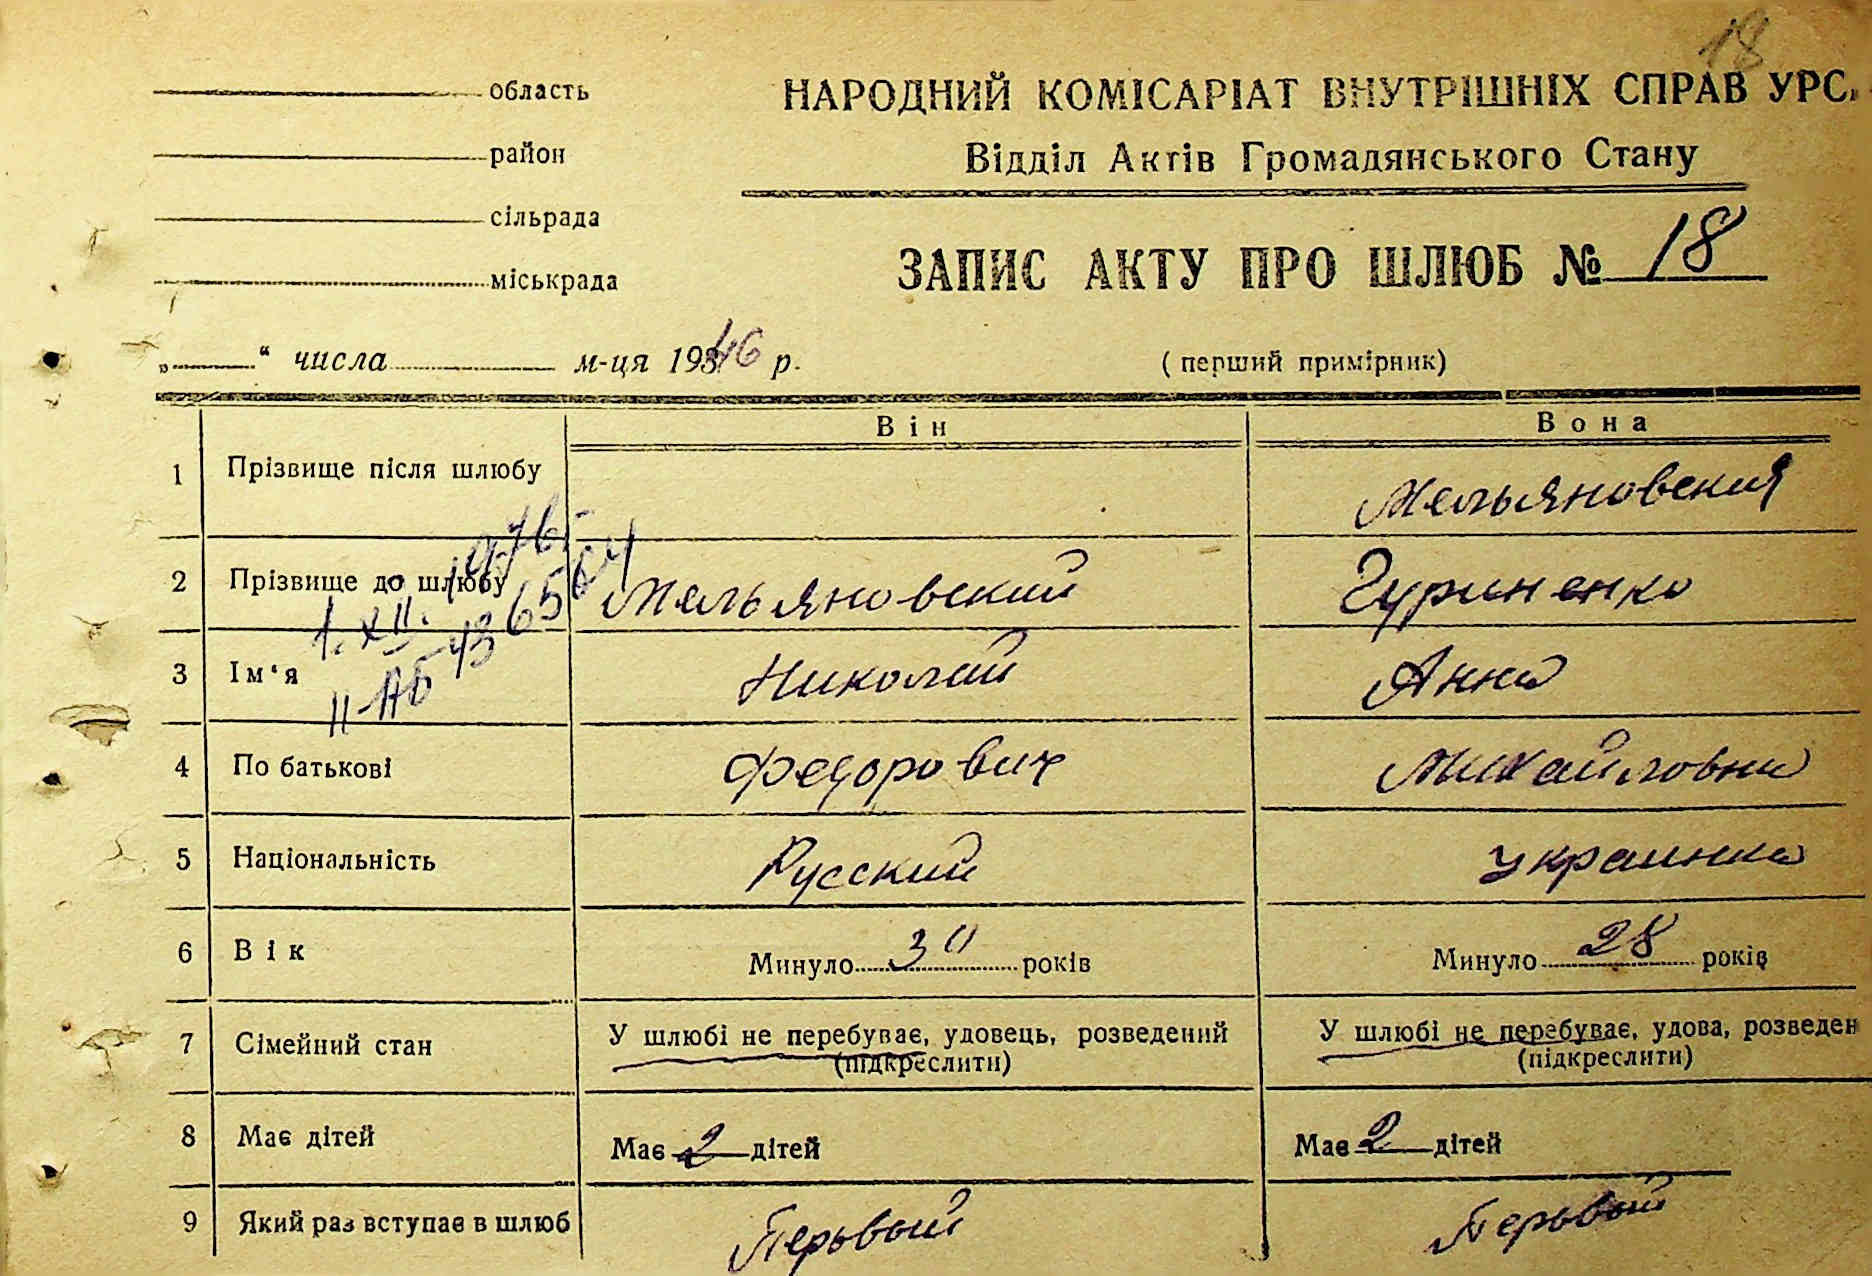 18
область
район
сільрада
міськрада
НАРОДНИЙ КОМІСАРІАТ ВНУТРІШНІХ СПРАВ УРС
Відділ Актів Громадянського Стану
ЗАПИС АКТУ ПРО ШЛЮБ № 18
„ “ числа м-ця 1946 р.
(перший примірник)
Він Вона
1 Прізвище після шлюбу Мельяновския
2 Прізвище до шлюбу Мельяновский Гуриненко
1. XII. 1976
II-АБ 436564
3 Ім‘я Николай Анна
4 По батькові Федорович Михайловна
5 Національність Русский украинка
6 Вік Минуло років Минуло 28 років
7 Сімейний стан У шлюбі не перебуває, удовець, розведений У шлюбі не перебуває, удова, розведен
(підкреслити) (підкреслити)
8 Має дітей Має 2 дітей Має 2 дітей
9 Який раз вступає в шлюб Перьвый Перьвый